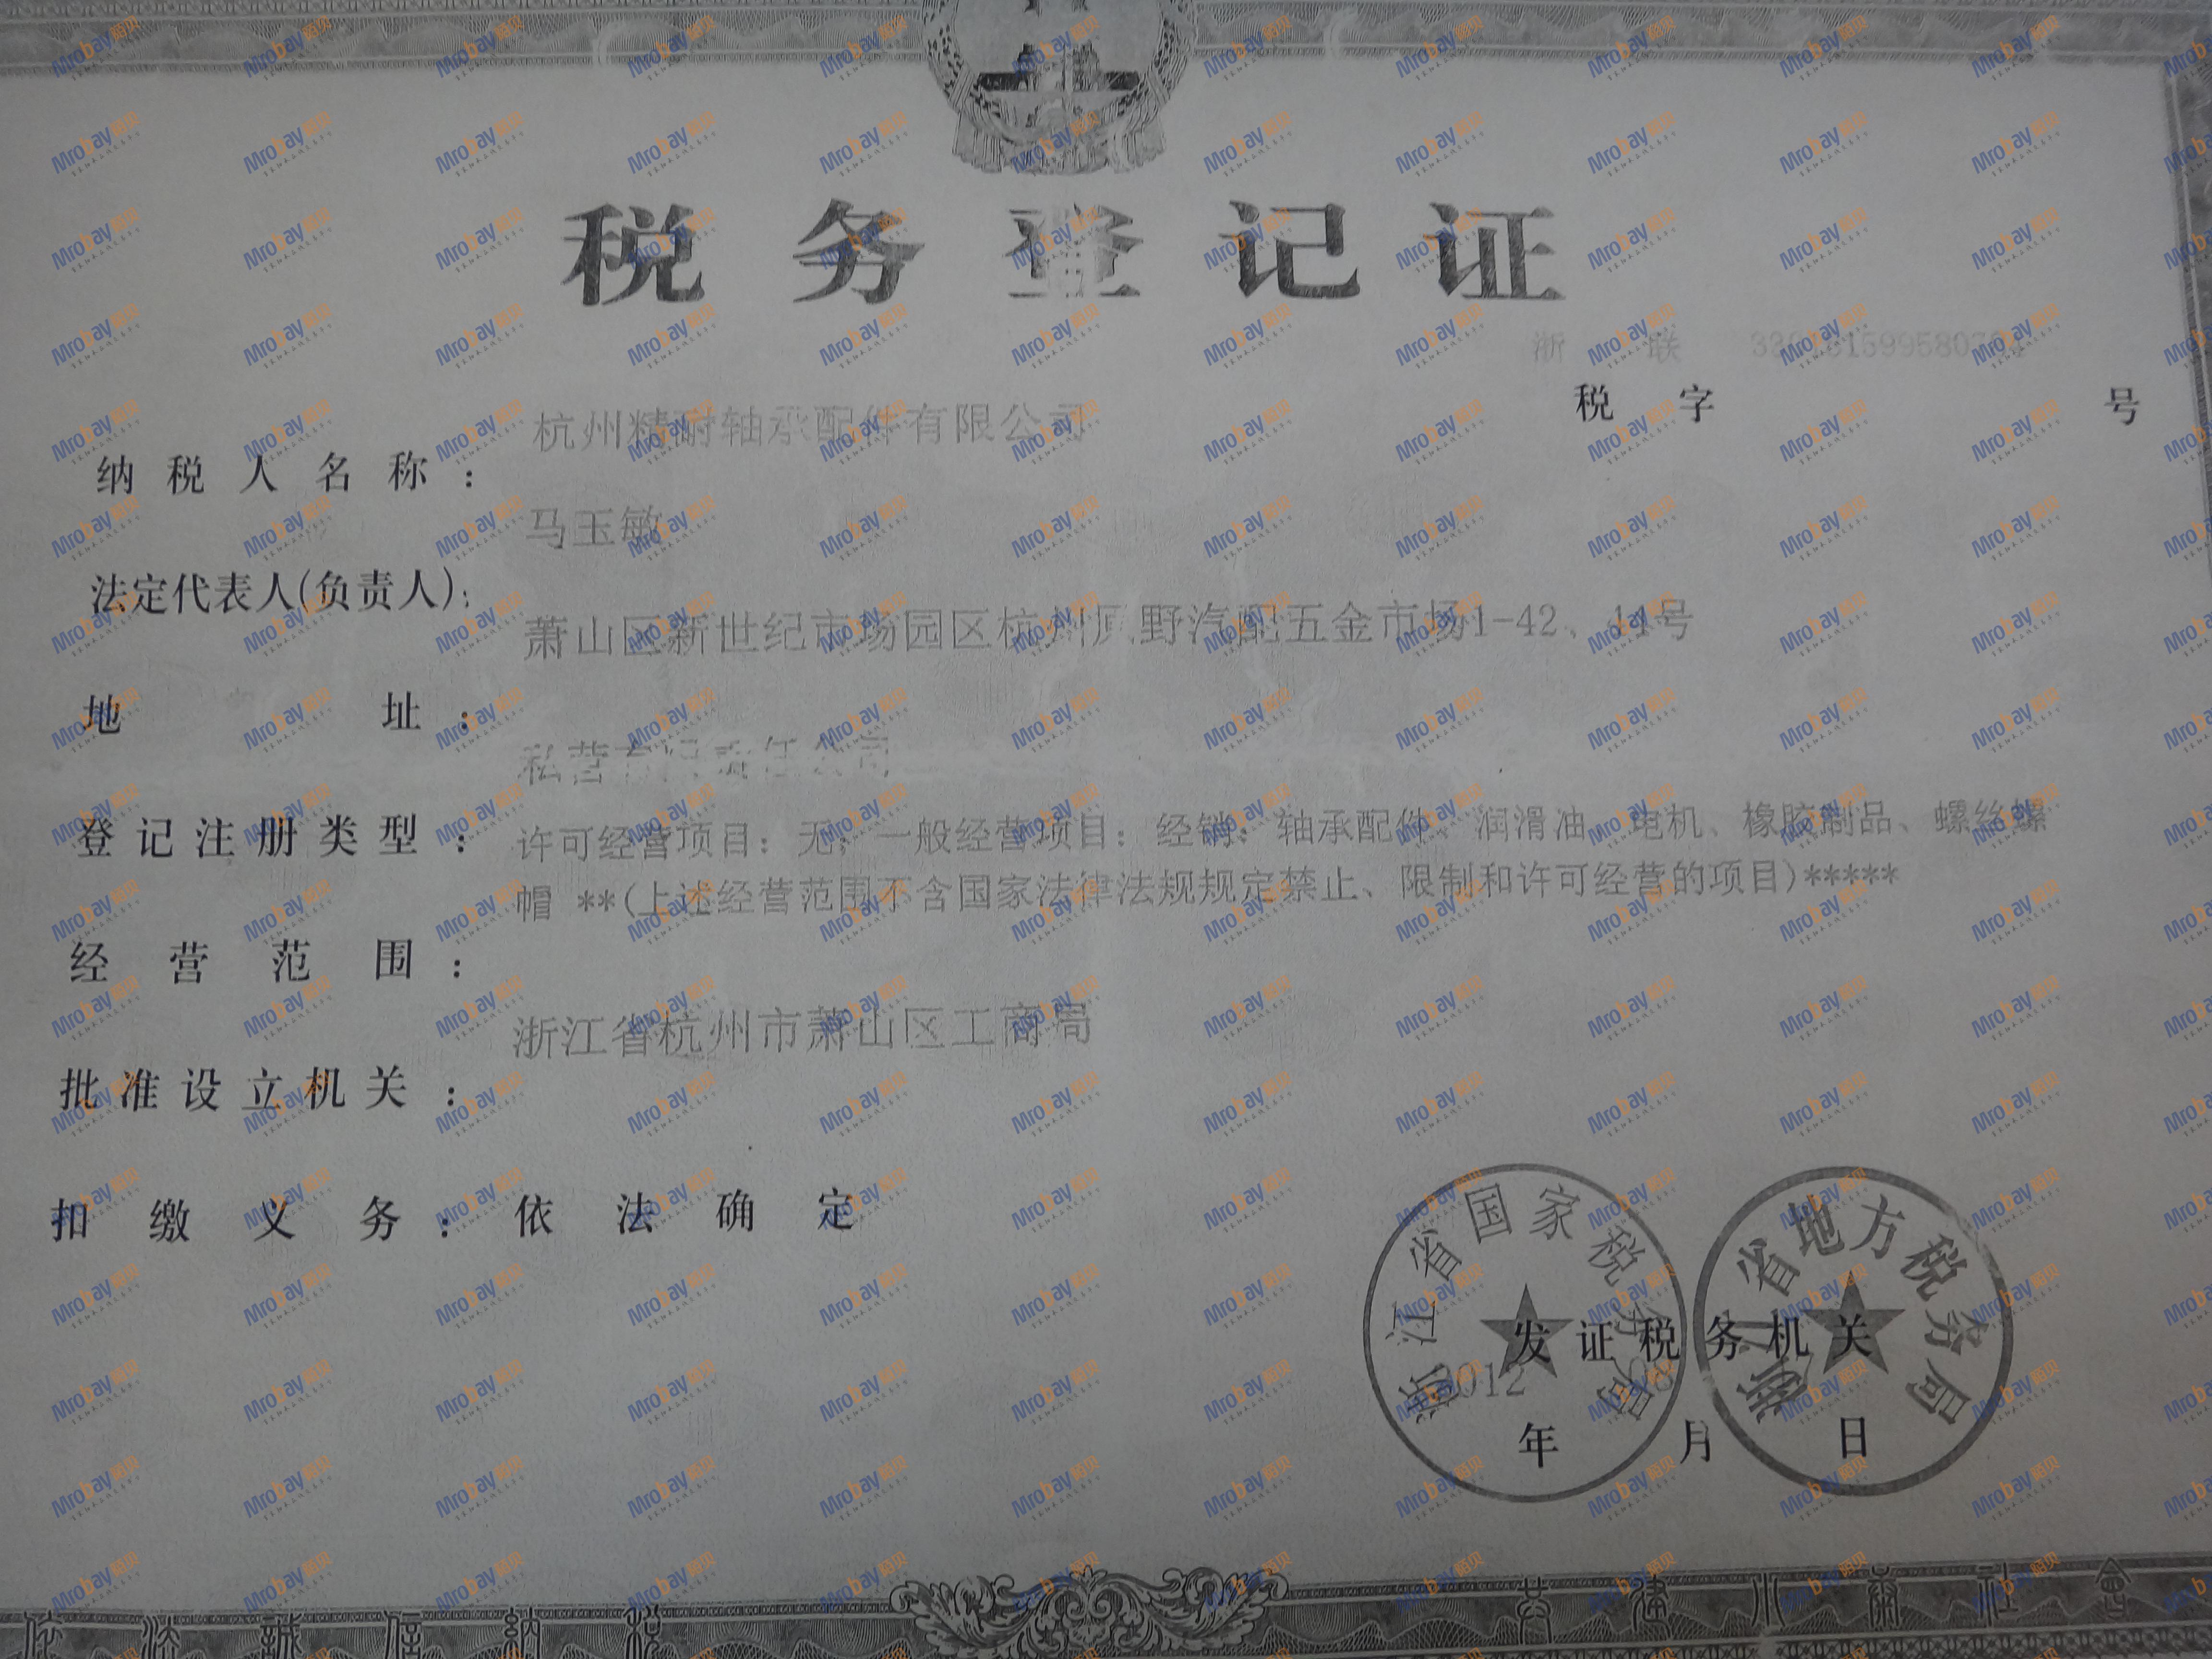 税务登记证
浙 联
税 字 号
纳税人名称：
杭州精耐轴承配件有限公司
法定代表人(负责人)：
马玉敏
地 址：
萧山区新世纪市场园区杭州原野汽配五金市场1-42、44号
登记注册类型：
私营有限责任公司
经营范围：
许可经营项目：无；一般经营项目：经销：轴承配件、润滑油、电机、橡胶制品、螺丝螺
帽 **(上述经营范围不含国家法律法规规定禁止、限制和许可经营的项目)*****
批准设立机关：
浙江省杭州市萧山区工商局
扣缴义务：依法确定
浙江省国家税务局
浙江省地方税务局
发证税务机关
2012
年 月 日
依法诚信纳税
共建小康社会
Mrobay陌贝